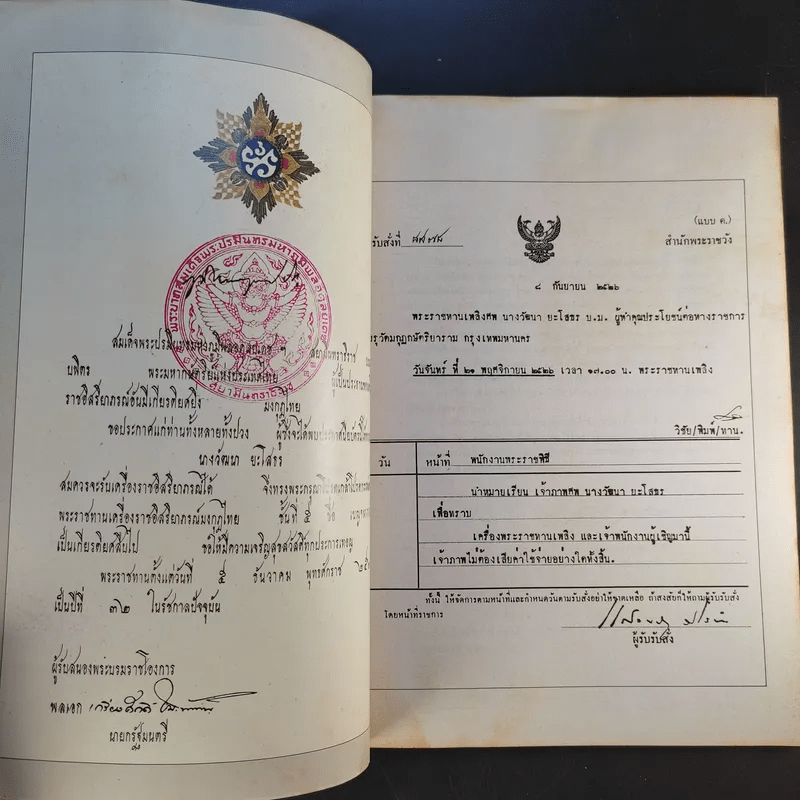 พระบาทสมเด็จพระปรมินทรมหาภูมิพลอดุลยเดช
สยามินทราธิราช
สมเด็จพระปรมินทรมหาภูมิพลอดุลยเดช ฯ สยามินทราธิราช
บพิตร พระมหากษัตริย์แห่งประเทศไทย ผู้เป็นประธาน
ราชอิสริยาภรณ์อันมีเกียรติยศยิ่ง มงกุฎไทย
ขอประกาศแก่ท่านทั้งหลายทั้งปวง ผู้ซึ่งจะได้พบประกาศนียบัตรนี้
นางวัฒนา ยะโสธร
สมควรจะรับเครื่องราชอิสริยาภรณ์ได้ จึงทรงพระกรุณาโปรดเกล้าโปรด
พระราชทานเครื่องราชอิสริยาภรณ์มงกุฎไทย ชั้นที่ ๕ ชื่อ
เป็นเกียรติยศสืบไป ขอให้มีความเจริญสุขสวัสดิ์ทุกประการเทอญ
พระราชทานตั้งแต่วันที่ ๕ ธันวาคม พุทธศักราช
เป็นปีที่ ๓๒ ในรัชกาลปัจจุบัน
ผู้รับสนองพระบรมราชโองการ
พลเอก เกรียงศักดิ์
นายกรัฐมนตรี
(แบบ ค.)
รับสั่งที่
สำนักพระราชวัง
๘ กันยายน ๒๕๒๖
พระราชทานเพลิงศพ นางวัฒนา ยะโสธร บ.ม. ผู้ทำคุณประโยชน์ต่อทางราชการ
วัดมกุฏกษัตริยาราม กรุงเทพมหานคร
วันจันทร์ ที่ ๒๑ พฤศจิกายน ๒๕๒๖ เวลา ๑๗.๐๐ น. พระราชทานเพลิง
วิชัย/พิมพ์/ทาน.
วัน หน้าที่ พนักงานพระราชพิธี
นำหมายเรียน เจ้าภาพศพ นางวัฒนา ยะโสธร
เพื่อทราบ
เครื่องพระราชทานเพลิง และเจ้าพนักงานผู้เชิญมานี้
เจ้าภาพไม่ต้องเสียค่าใช้จ่ายอย่างใดทั้งสิ้น.
ทั้งนี้ ให้จัดการตามหน้าที่และกำหนดวันตามรับสั่งอย่าให้ขาดเหลือ ถ้าสงสัยก็ให้ถามผู้รับรับสั่ง
โดยหน้าที่ราชการ
ผู้รับรับสั่ง